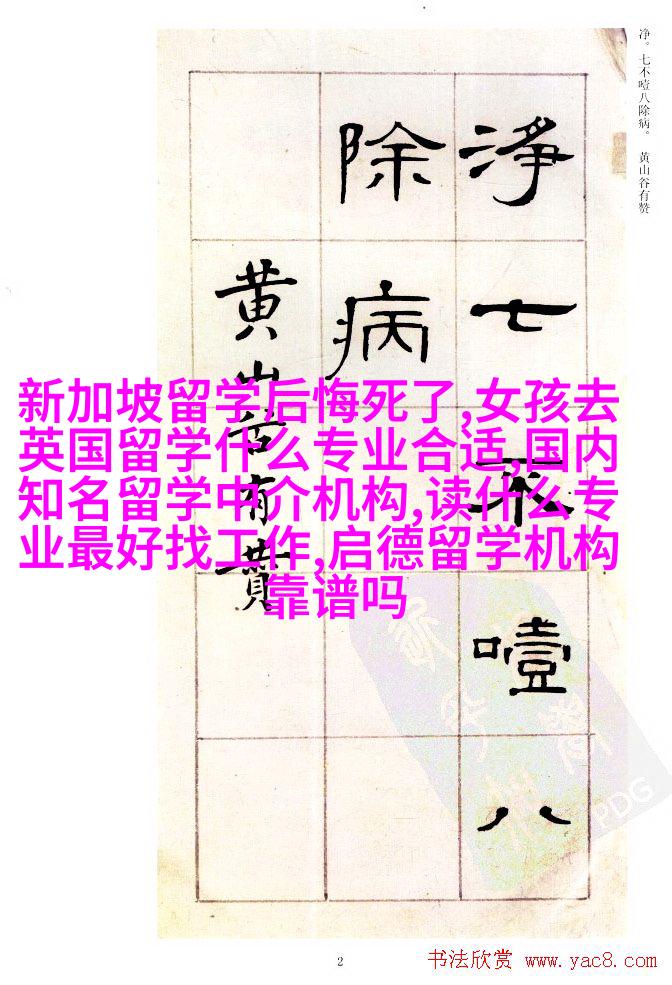 净。七不噎八除病。　黄山谷有赞
淨七不噎八
除病
黄山谷有賛
新加坡留学后悔死了,女孩去
英国留学什么专业合适,国内
知名留学中介机构,读什么专
业最好找工作,启德留学机构
靠谱吗
PDG
2
书法欣赏 www.yac8.com